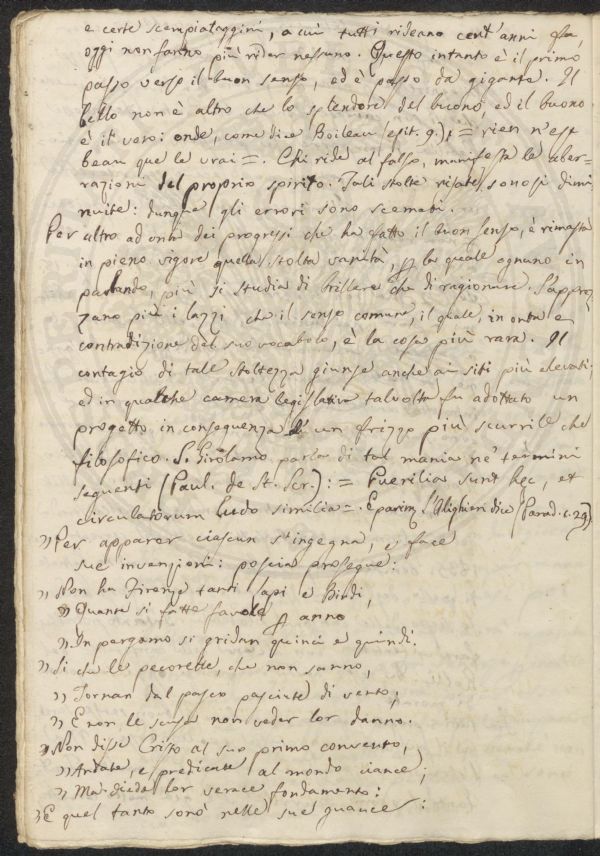 e certe scempiataggini, a cui tutti rideano cent'anni fa,
oggi non fanno più rider nessuno. Questo intanto è il primo
passo verso il buon senso, ed è passo da gigante. Il
bello non è altro che lo splendore del buono, ed il buono
è il vero: onde, come dice Boileau (epit. 9.), = rien n'est
beau que le vrai =. Chi ride al falso, manifesta le aber-
razioni del proprio spirito. Tali stolte risate sonosi dimi
nuite: dunque gli errori sono scemati.
Per altro ad onta dei progressi che ha fatto il buon senso, è rimasta
in pieno vigore quella stolta vanità, p la quale ognuno in
parlando, più si studia di brillare che di ragionare. S'apprez
zano più i lazzi che il senso comune, il quale, in onta e
contradizione del suo vocabolo, è la cosa più rara. Il
contagio di tale stoltezza giunse anche ai siti più elevati;
ed in qualche camera legislativa talvolta fu adottato un
progetto in conseguenza di un frizzo più scurrile che
filosofico. S. Girolamo parla di tal mania ne' termini
seguenti (Paul. de St. Scr.): = Puerilia sunt hęc, et
circulatorum ludo similia =. E parim. l'Alighieri dice (Parad. c. 29)
" Per apparer ciascun s'ingegna, e face
sue invenzioni: poscia prosegue:
" Non ha Firenze tanti Lapi e Bindi,
" Quante si fatte favole p anno
" In pergamo si gridan quinci e quindi.
" Sì che le pecorelle, che non sanno,
" Tornan dal pasco pasciute di vento;
" E non le scusa non veder lor danno.
" Non disse Cristo al suo primo convento,
" Andate, e predicate al mondo ciance;
" Ma diede lor verace fondamento:
" E quel tanto sonò nelle sue guance: